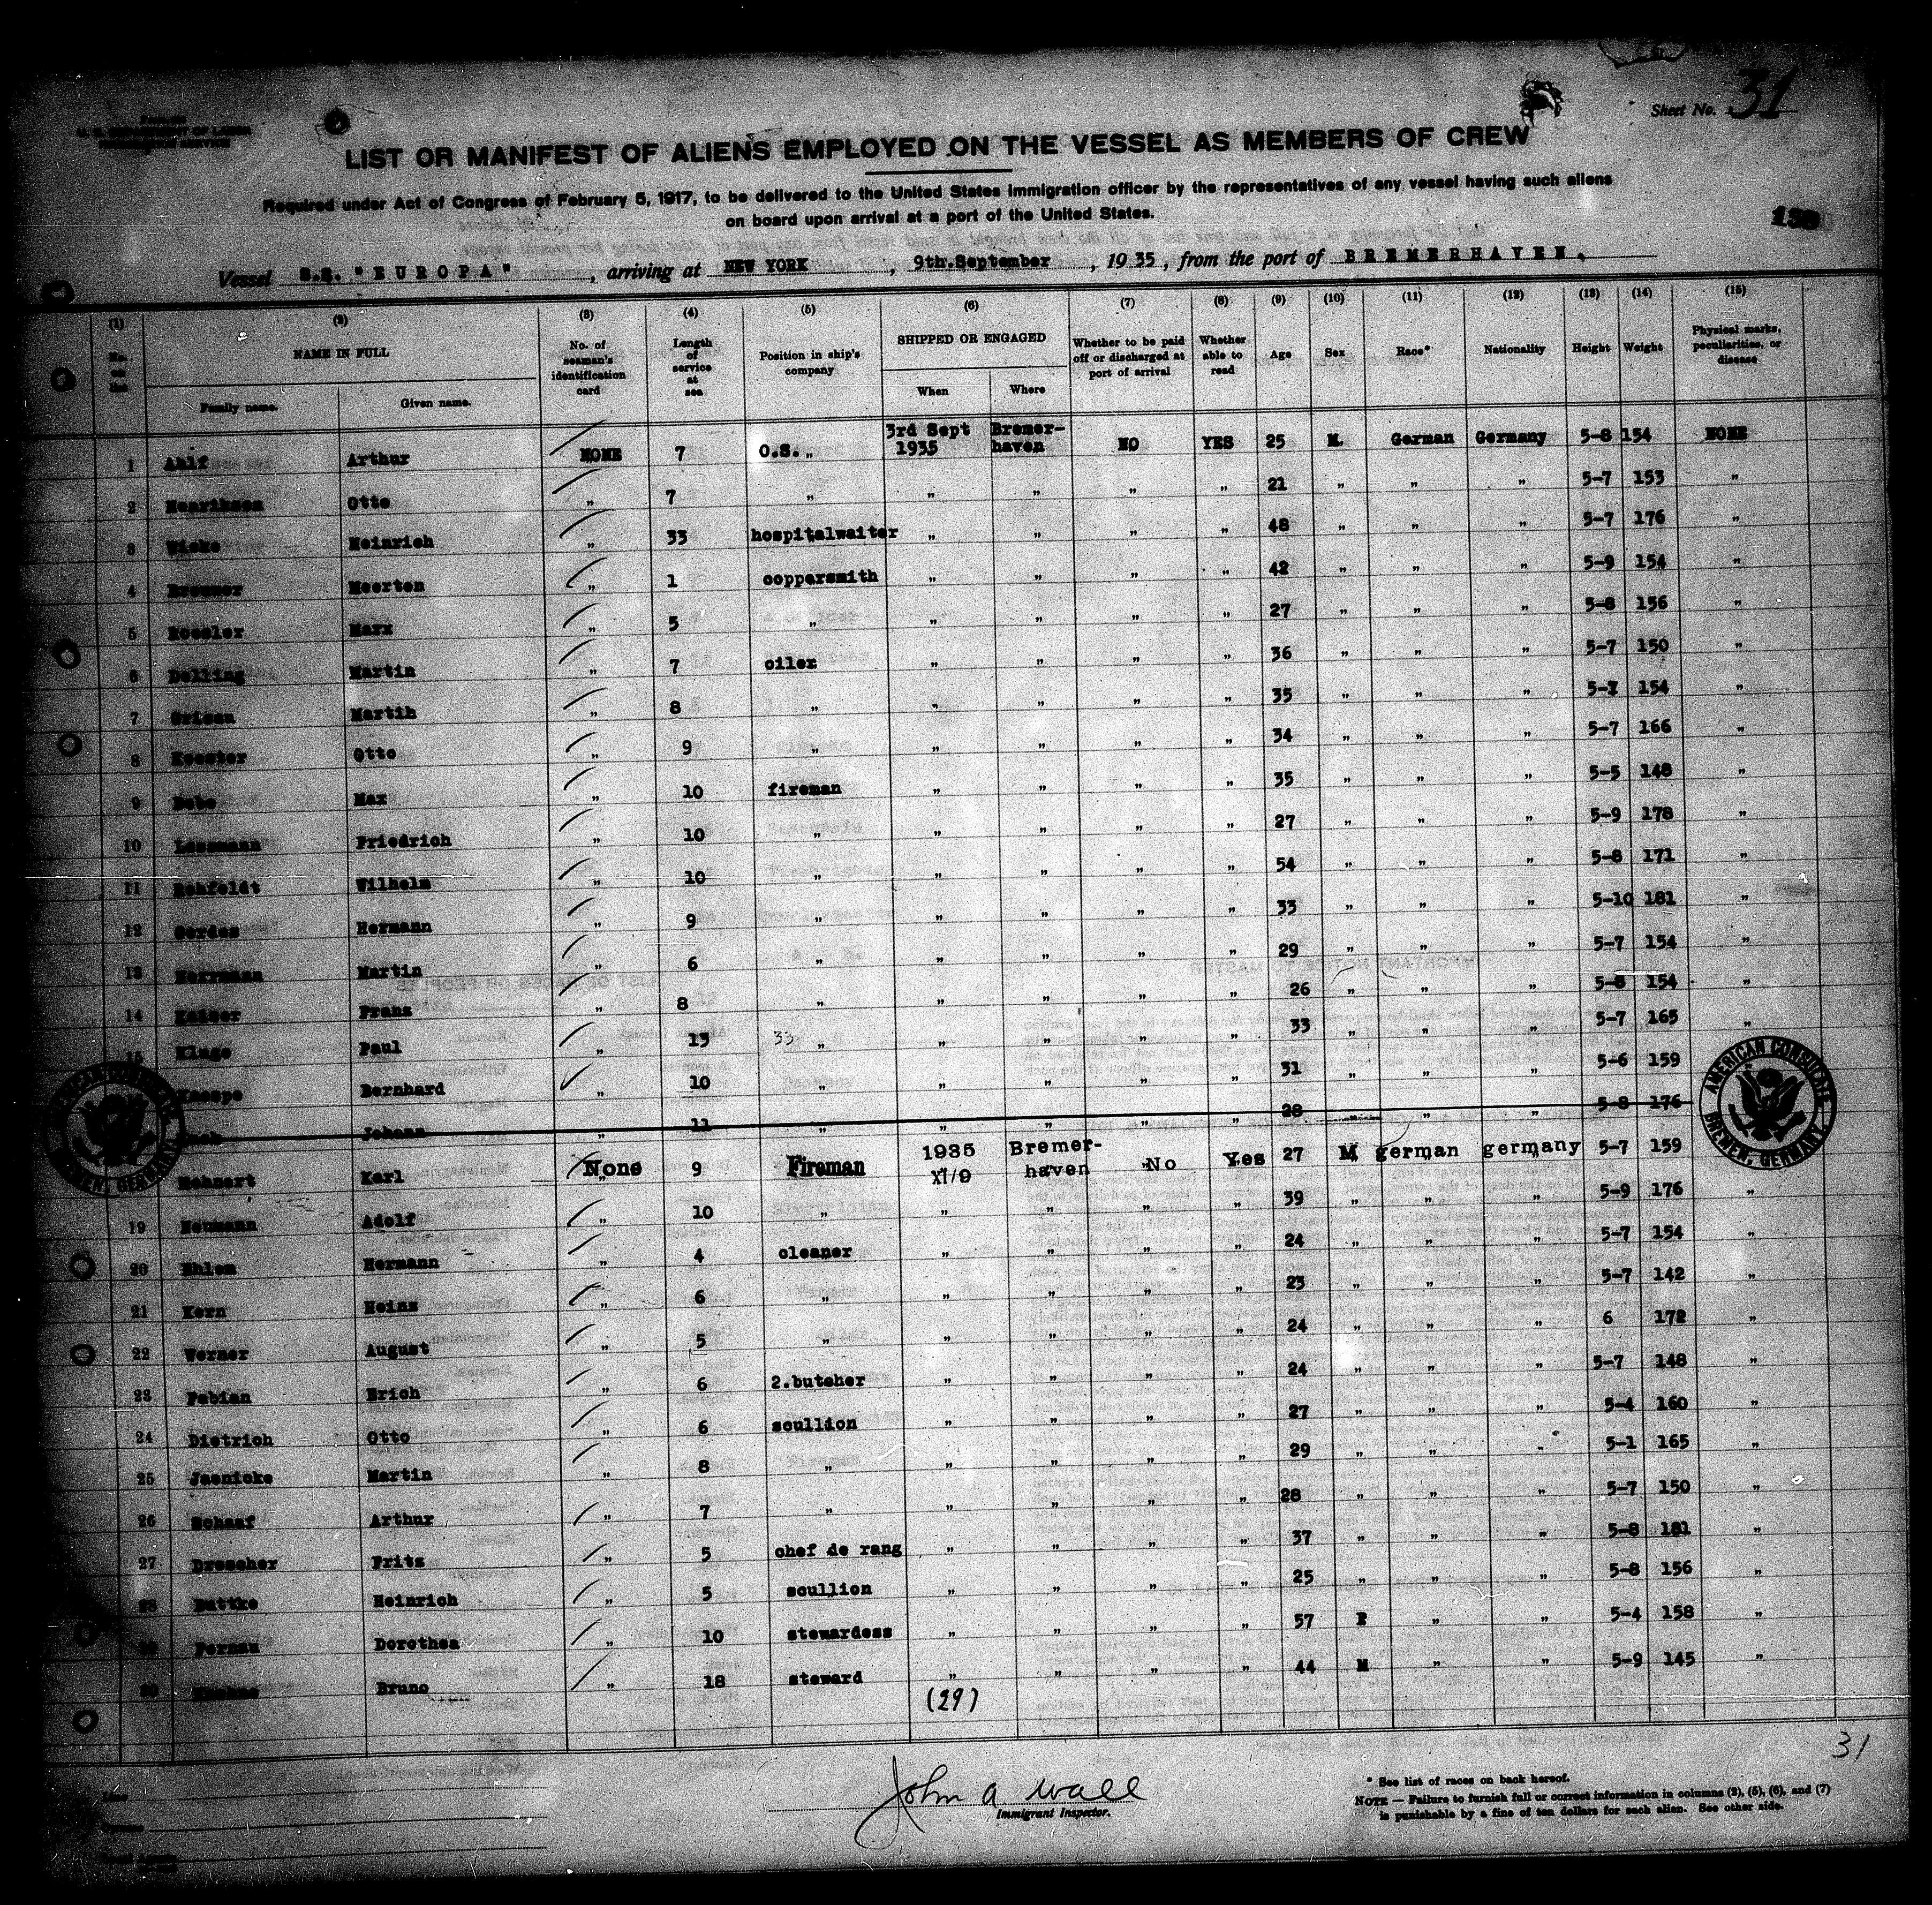 U. S. DEPARTMENT OF LABOR
IMMIGRATION SERVICE
Sheet No. 31
LIST OR MANIFEST OF ALIENS EMPLOYED ON THE VESSEL AS MEMBERS OF CREW
Required under Act of Congress of February 5, 1917, to be delivered to the United States Immigration officer by the representatives of any vessel having such aliens
on board upon arrival at a port of the United States.
Vessel S.S. "EUROPA", arriving at NEW YORK, 9th.September, 1935, from the port of BREMERHAVEN.
(1) (2) (3) (4) (5) (6) (7) (8) (9) (10) (11) (12) (13) (14) (15)
No. on list NAME IN FULL Family name. Given name. No. of seaman's identification card Length of service at sea Position in ship's company SHIPPED OR ENGAGED When Where Whether to be paid off or discharged at port of arrival Whether able to read Age Sex Race* Nationality Height Weight Physical marks, peculiarities, or disease
1 Ahlf Arthur NONE 7 O.S. „ 3rd Sept 1935 Bremer-haven NO YES 25 M. German Germany 5-8 154 NONE
2 Henriksen Otto „ 7 „ „ „ „ „ 21 „ „ „ 5-7 153 „
3 Wicke Heinrich „ 33 hospitalwaiter „ „ „ „ 48 „ „ „ 5-7 176 „
4 Meerten „ 1 coppersmith „ „ „ „ 42 „ „ „ 5-9 154 „
5 Koesler Marx „ 5 „ „ „ „ „ 27 „ „ „ 5-8 156 „
6 Delling Martin „ 7 oiler „ „ „ „ 36 „ „ „ 5-7 150 „
7 Martih „ 8 „ „ „ „ „ 35 „ „ „ 154 „
8 Koester Otto „ 9 „ „ „ „ „ 34 „ „ „ 5-7 166 „
9 Max „ 10 fireman „ „ „ „ 35 „ „ „ 5-5 148 „
10 Friedrich „ 10 „ „ „ „ „ 27 „ „ „ 5-9 178 „
11 Rehfeldt Wilhelm „ 10 „ „ „ „ „ 54 „ „ „ 5-8 171 „
12 Gerdes Hermann „ 9 „ „ „ „ „ 33 „ „ „ 5-10 181 „
13 Herrmann Martin „ 6 „ „ „ „ „ 29 „ „ „ 5-7 154 „
14 Kaiser Franz „ 8 „ „ „ „ „ 26 „ „ „ 5-8 154 „
15 Kluge Paul „ 13 33 „ „ „ „ „ 33 „ „ „ 5-7 165 „
Knespe Bernhard „ 10 „ „ „ „ „ 31 „ „ „ 5-6 159
Johann „ 11 „ „ „ „ „ 28 „ „ 5-8 176
Mehnert Karl None 9 Fireman 1935 XI/9 Bremer-haven No Yes 27 M german germany 5-7 159
19 Neumann Adolf „ 10 „ „ „ „ „ 39 „ „ „ 5-9 176 „
20 Ehlen Hermann „ 4 cleaner „ „ „ „ 24 „ „ „ 5-7 154 „
21 Kern Heinz „ 6 „ „ „ „ „ 23 „ „ „ 5-7 142 „
22 Werner August „ 5 „ „ „ „ „ 24 „ „ „ 6 172 „
23 Fabian Erich „ 6 2.butcher „ „ „ „ 24 „ „ „ 5-7 148 „
24 Dietrich Otto „ 6 scullion „ „ „ „ 27 „ „ „ 5-4 160 „
25 Jaenicke Martin „ 8 „ „ „ „ „ 29 „ „ „ 5-1 165 „
26 Schaaf Arthur „ 7 „ „ „ „ „ 28 „ „ „ 5-7 150 „
27 Drescher Fritz „ 5 chef de rang „ „ „ „ 37 „ „ „ 5-8 181 „
28 Buttke Heinrich „ 5 scullion „ „ „ „ 25 „ „ „ 5-8 156 „
29 Pernau Dorothea „ 10 stewardess „ „ „ „ 57 F „ „ 5-4 158 „
30 Bruno „ 18 steward „ „ „ „ 44 M „ „ 5-9 145 „
(29)
AMERICAN CONSULATE BREMEN, GERMANY
AMERICAN CONSULATE BREMEN, GERMANY
31
John A Wall
Immigrant Inspector.
* See list of races on back hereof.
NOTE — Failure to furnish full or correct information in columns (2), (5), (6), and (7)
is punishable by a fine of ten dollars for each alien. See other side.